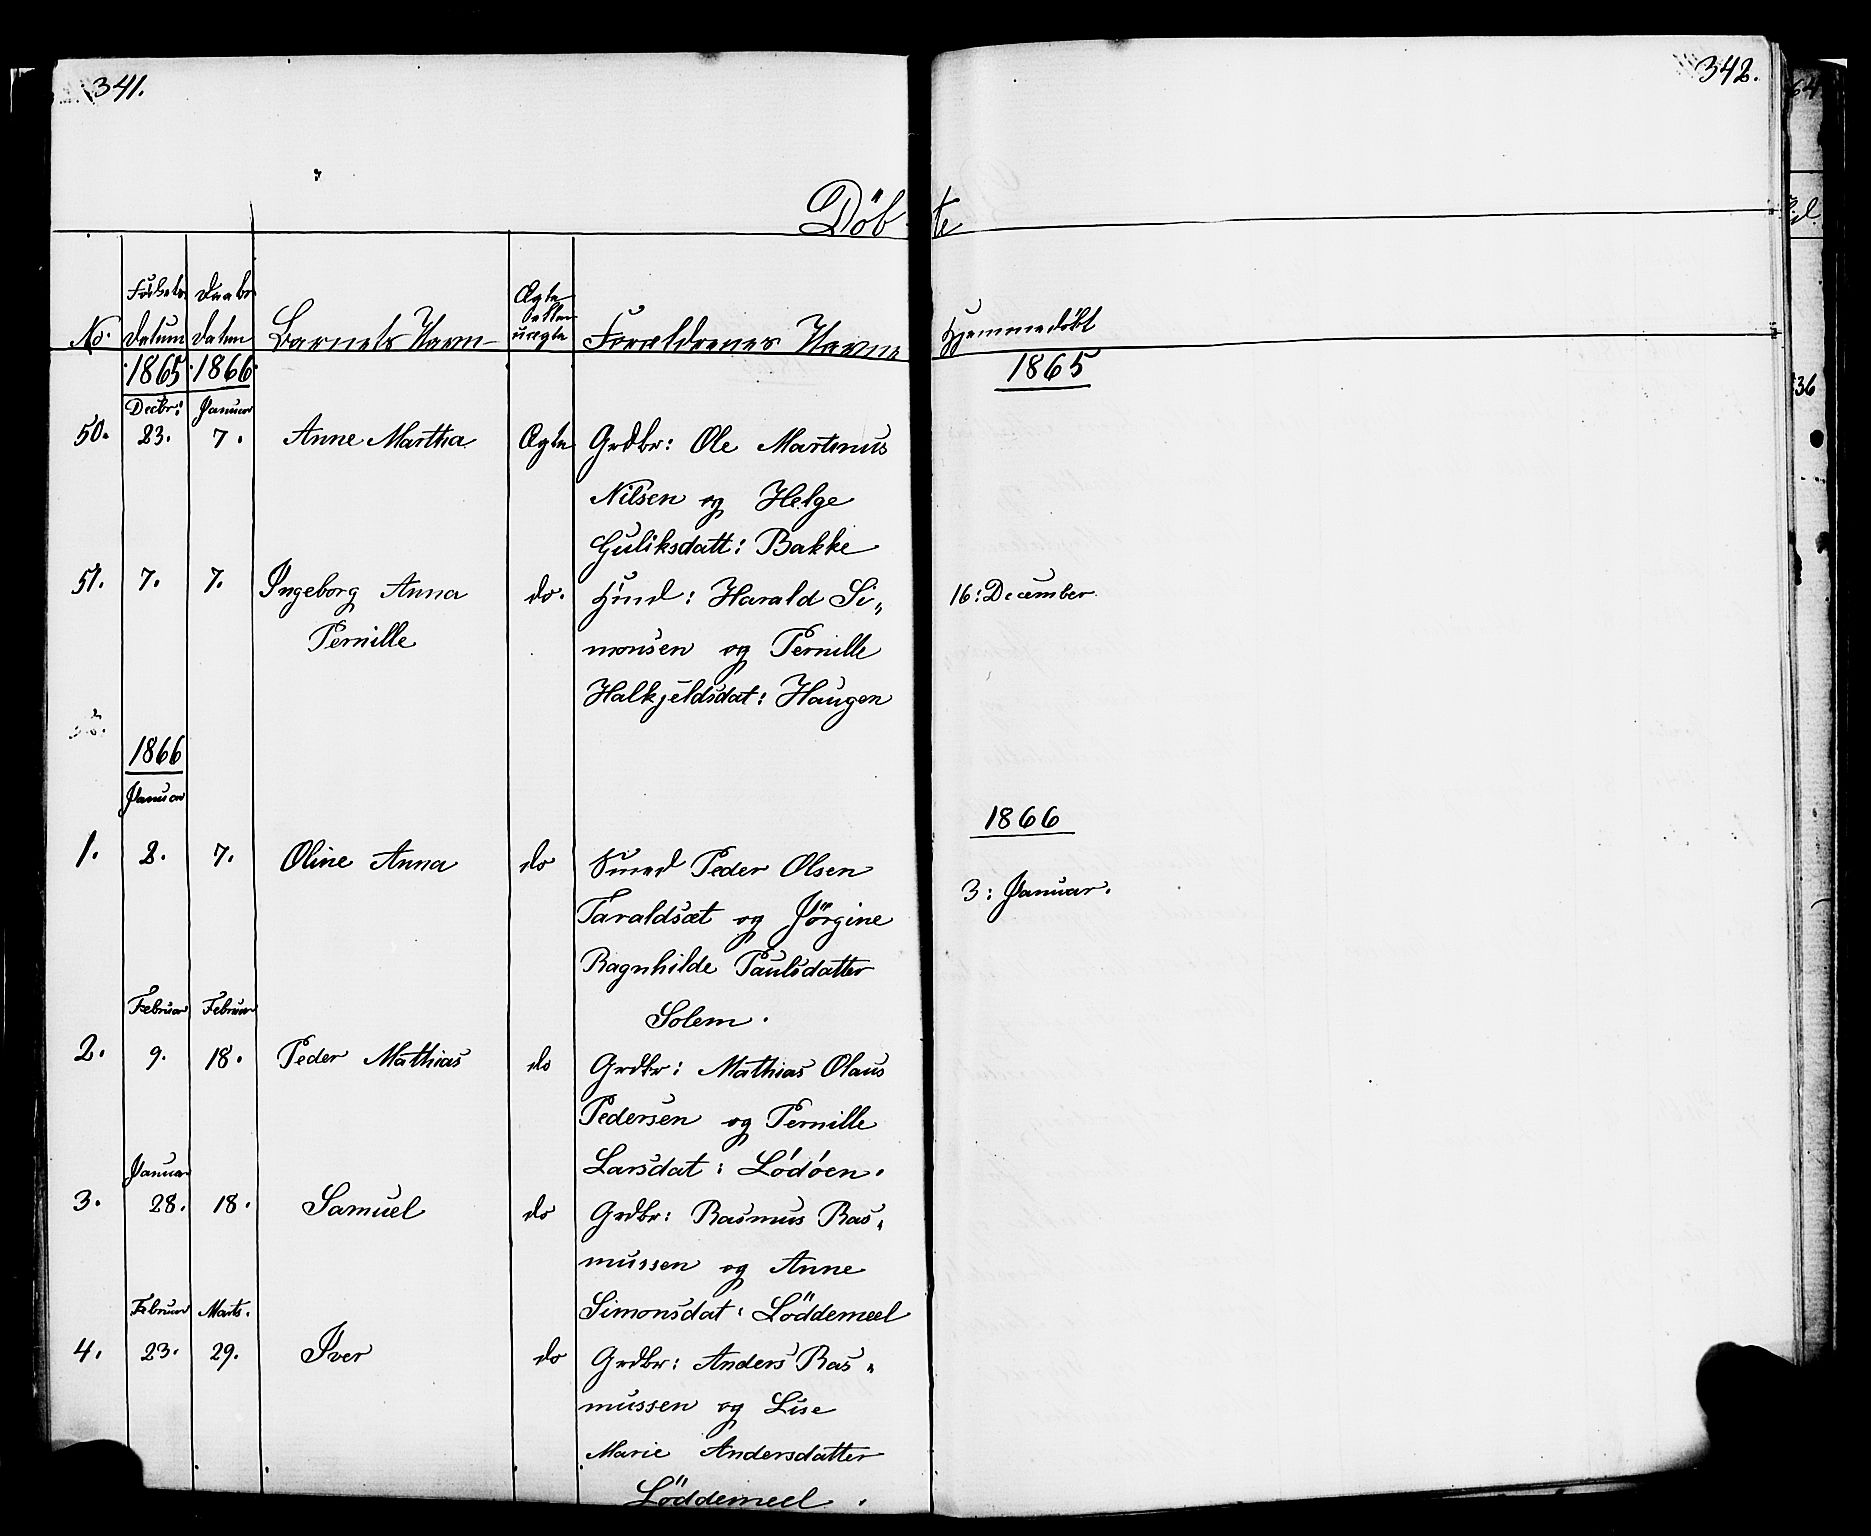 341.
342.
Döbte
No.
Födsels Datum
Daabs Daten
Barnets Navn
Ægte eller uægte
Forældrenes Navne
Hjemmedöbt
1865
1866
1865
Decbr:
Januar
50. 23. 7. Anne Martha Ægte Grdbr: Ole Martinus
Nilsen og Helge
Guliksdatt: Bakke
51. 7. 7. Ingeborg Anna do. Huusm: Harald Si„
16: December
Pernille monsen og Pernille
Halkjeldsdat: Haugen
1866
Januar
1866
1. 2. 7. Oline Anna do Smed Peder Olsen
3: Januar.
Taraldsæt og Jörgine
Ragnhilde Paulsdatter
Februar Februar Solem.
2. 9. 18. Peder Mathias do Grdbr: Mathias Olaus
Pedersen og Pernille
Januar Larsdat: Lódóen.
3. 28. 18. Samuel do Grdbr: Rasmus Ras„
mussen og Anne
Februar Marts. Simonsdat: Löddemeel
4. 23. 29. Iver do Grdbr: Anders Ras„
mussen og Lise
Marie Andersdatter
Löddemeel.